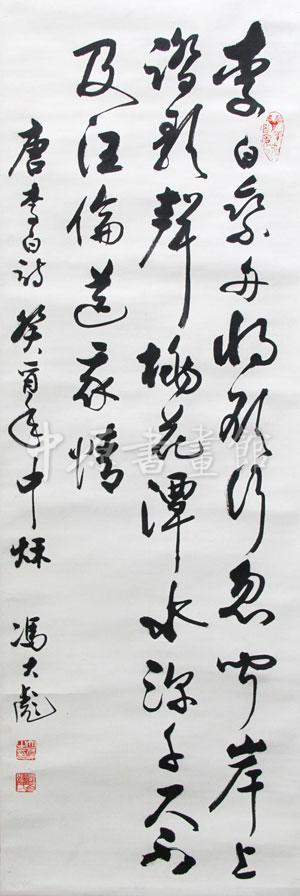 李白乘舟将欲行忽闻岸上
踏歌声桃花潭水深千尺不
及汪伦送我情
唐李白诗癸酉年中秌
冯大彪
中源書畫館